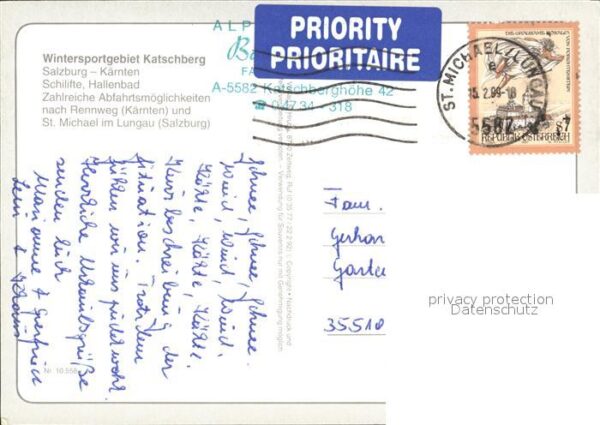 Wintersportgebiet Katschberg
Salzburg – Kärnten
Schilifte, Hallenbad
Zahlreiche Abfahrtsmöglichkeiten
nach Rennweg (Kärnten) und
St. Michael im Lungau (Salzburg)
ALP
A-5582 Katschberghöhe 42
☎ 04734 - 318
PRIORITY
PRIORITAIRE
ST. MICHAEL/LUNGAU
15.2.99-18
5582
REPUBLIK ÖSTERREICH
S7
Schnee, Schnee, Schnee.
Wind, Wind, Wind.
Kälte, Kälte, Kälte.
Kurzbeschreibung der
Situation. Trotzdem
fühlen wir uns pudelwohl.
Herzliche Urlaubsgrüße
senden Euch
Marianne & Gerfried
Fam.
Gerhar
Garte
35510
Nr. 10.558
privacy protection
Datenschutz